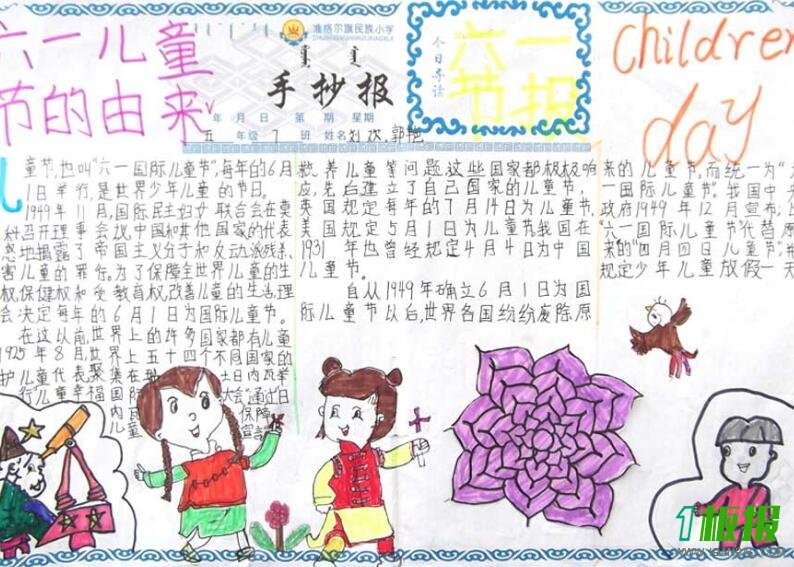 六一儿童
节的由来
准格尔旗民族小学
手抄报
年 月 日 第 期 星期
五 年级 7 班 姓名
今日导读
六一
节报
Children
day
儿
童节,也叫“六一国际儿童节”,每年的6月
1日举行,是世界少年儿童的节日。
1949年11月,国际民主妇女联合会在莫
科召开理事会议,中国和其他国家的代表
愤地揭露了帝国主义分子和反动派残杀、
害儿童的罪行。为了保障全世界儿童的生
权,保健权和受教育权,改善儿童的生活,理
会决定每年的6月1日为国际儿童节。
在这以前,世界上的许多国家都有儿童
1925年8月,世界上五十四个不同国家的
护儿童代表聚集在 土日内瓦举
行儿童幸福国际 大会”通过日
内瓦 保障
宣言
养儿童等问题,这些国家都积极响
应,先后建立了自己国家的儿童节,
英国规定每年的7月14日为儿童节,
美国规定5月1日为儿童节我国在
1931年也曾经规定4月4日为中国
儿童节。
自从1949年确立6月1日为国
际儿童节以后,世界各国纷纷废除原
来的儿童节,而统一为“六
一国际儿童节”。我国中央
政府1949年12月宣布;以
“六一国际儿童节”代替原
来的“四月四日儿童节”,并
规定少年儿童放假一天
1板报